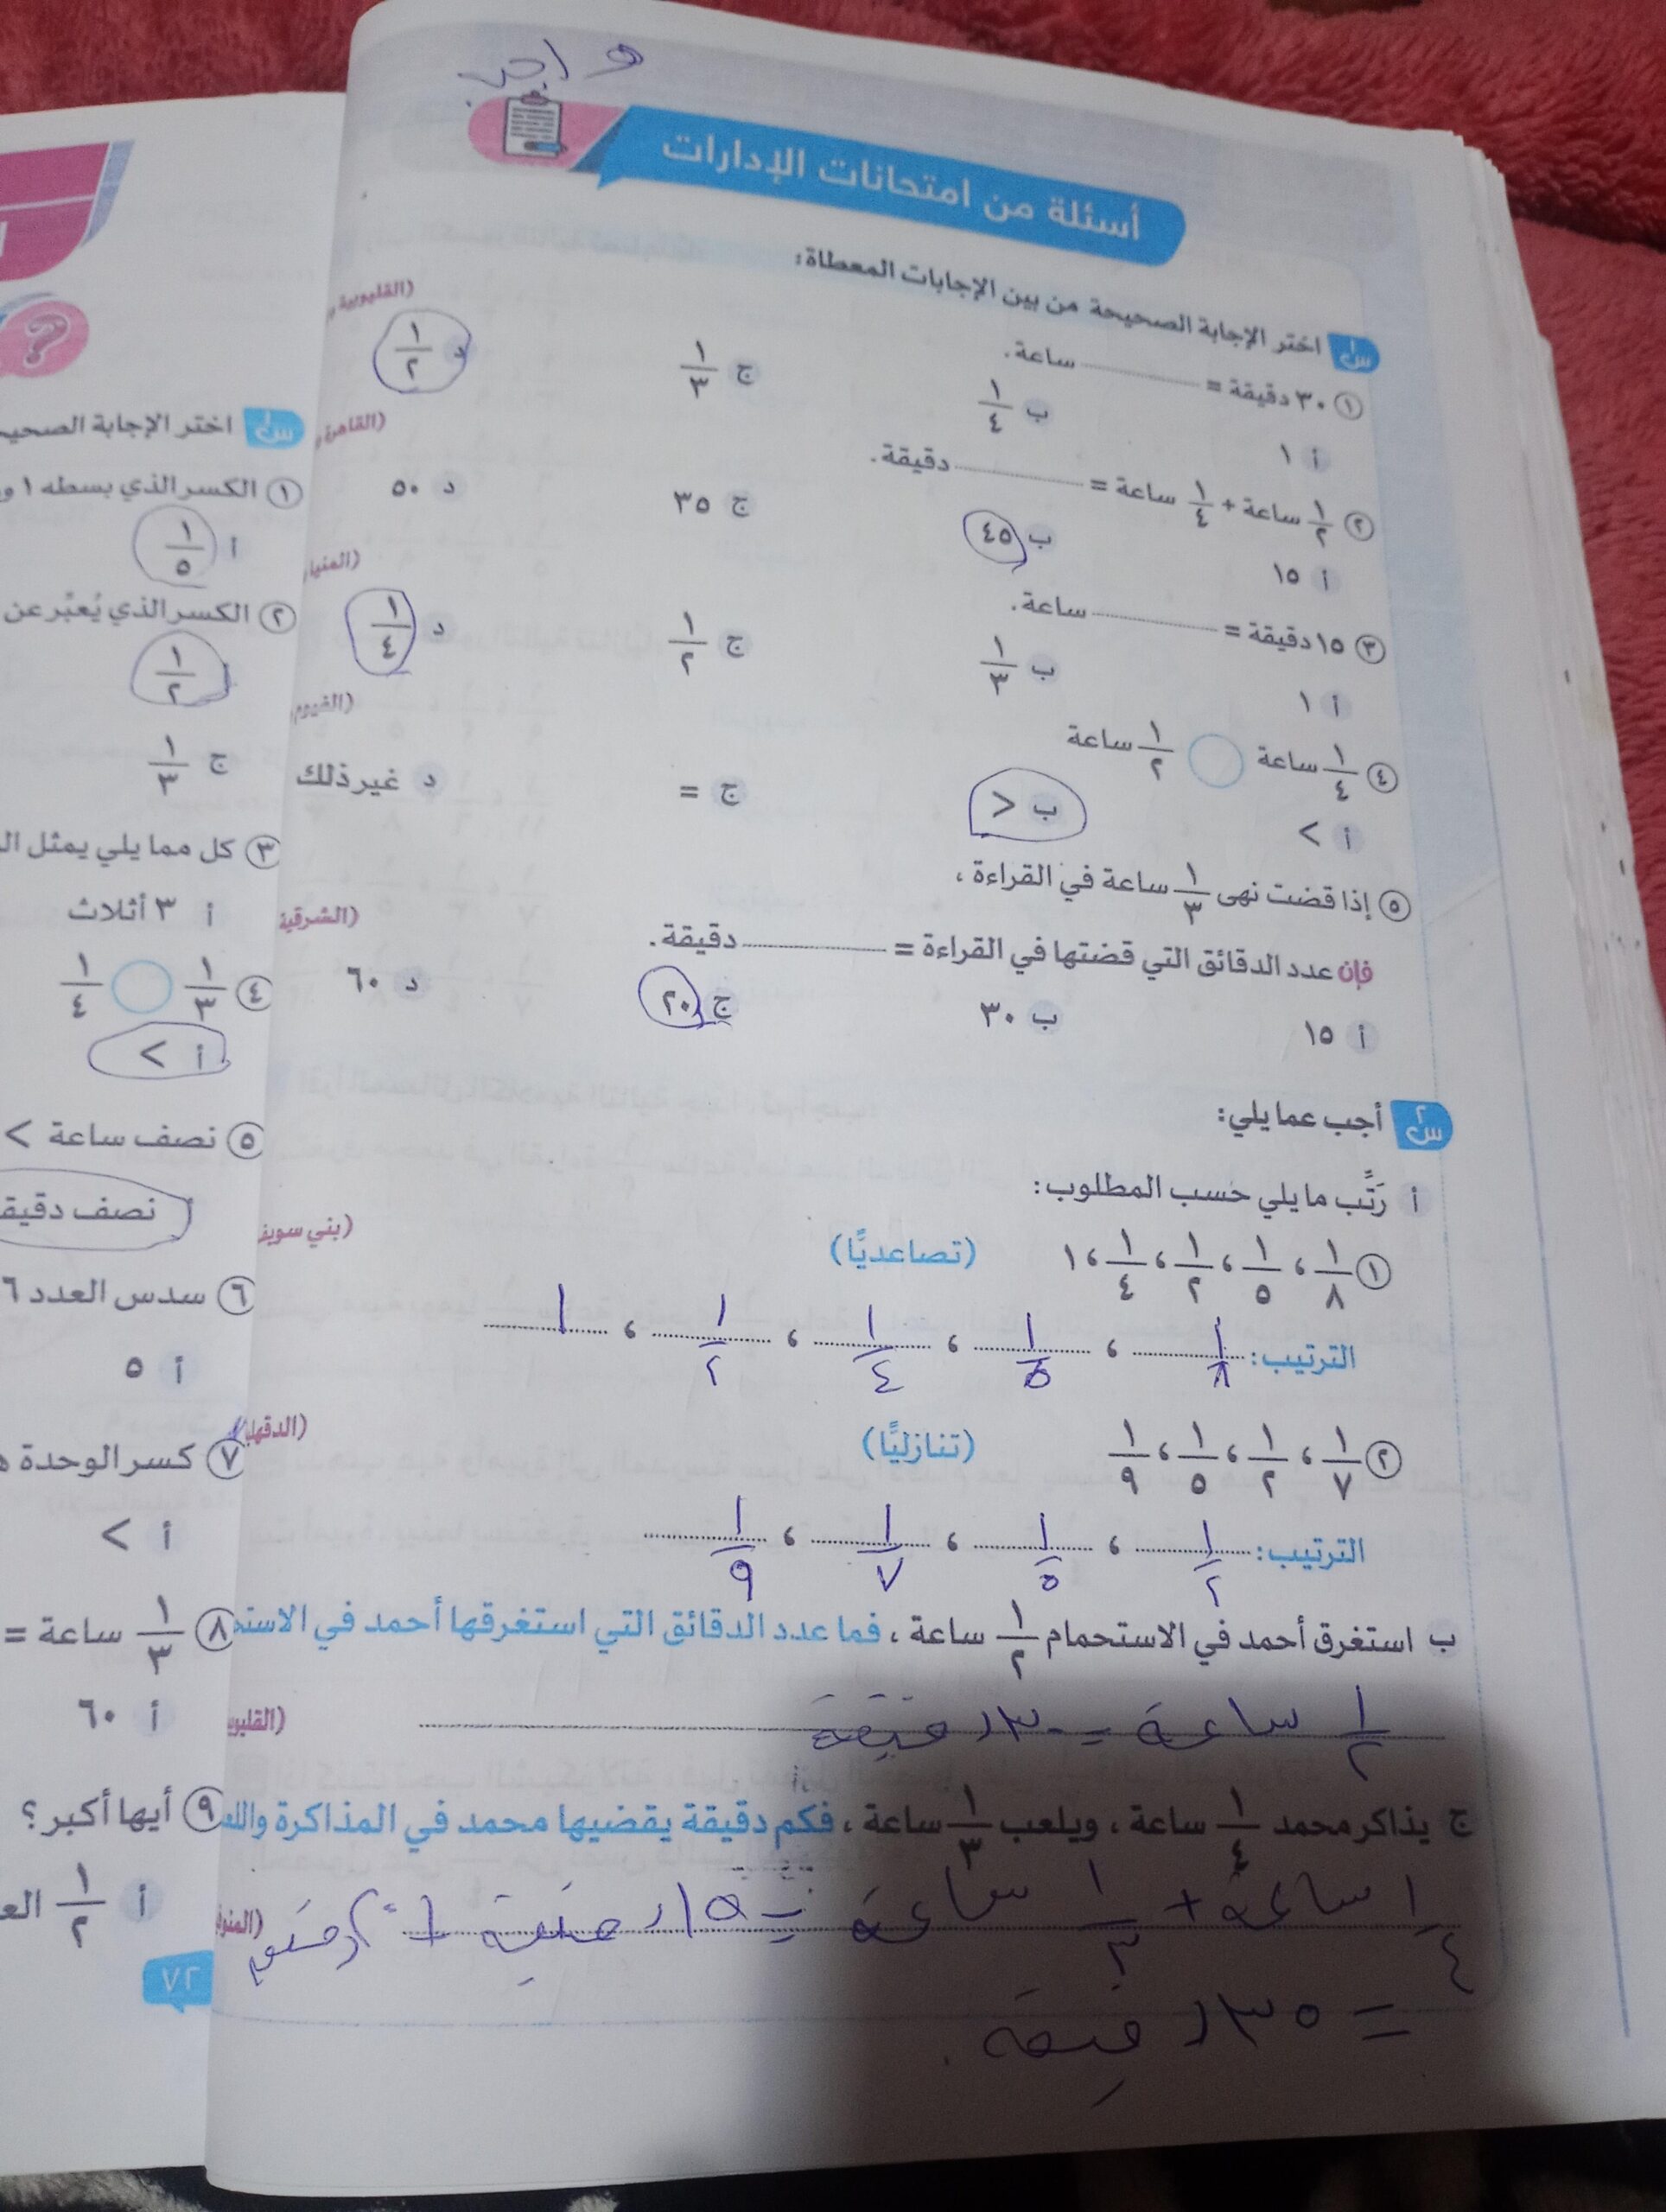 واجب
أسئلة من امتحانات الإدارات
س١ اختر الإجابة الصحيحة من بين الإجابات المعطاة:
١ ٣٠ دقيقة = ........ ساعة. (القليوبية
أ ١ ب ١/٤ ج ١/٣ د ١/٢
٢ ١/٢ ساعة + ١/٤ ساعة = ........ دقيقة. (القاهرة
أ ١٥ ب ٤٥ ج ٣٥ د ٥٠
٣ ١٥ دقيقة = ........ ساعة. (المنيا
أ ١ ب ١/٣ ج ١/٢ د ١/٤
٤ ١/٤ ساعة ○ ١/٢ ساعة (الفيوم
أ > ب < ج = د غير ذلك
٥ إذا قضت نهى ١/٣ ساعة في القراءة ،
فإن عدد الدقائق التي قضتها في القراءة = ........ دقيقة. (الشرقية
أ ١٥ ب ٣٠ ج ٢٠ د ٦٠
س٢ أجب عما يلي:
أ رَتِّب ما يلي حسب المطلوب:
١ ١/٨ ، ١/٥ ، ١/٢ ، ١/٤ ، ١ (تصاعديًّا) (بني سويف
الترتيب: ١/٨ ، ١/٥ ، ١/٤ ، ١/٢ ، ١
٢ ١/٧ ، ١/٢ ، ١/٥ ، ١/٩ (تنازليًّا) (الدقهلية
الترتيب: ١/٢ ، ١/٥ ، ١/٧ ، ١/٩
ب استغرق أحمد في الاستحمام ١/٢ ساعة ، فما عدد الدقائق التي استغرقها أحمد في
١/٢ ساعة = ٣٠ دقيقة (القليوبية
ج يذاكر محمد ١/٤ ساعة ، ويلعب ١/٣ ساعة ، فكم دقيقة يقضيها محمد في المذاكرة
١/٤ ساعة + ١/٣ ساعة = ١٥ دقيقة + ٢٠ دقيقة
= ٣٥ دقيقة .
س١ اختر الإجابة
١ الكسر الذي بسطه ١
أ ١/٥
٢ الكسر الذي يُعبِّر عن
١/٢
ج ١/٣
٣ كل مما يلي يمثل
أ ٣ أثلاث
٤ ١/٣ ○ ١/٤
أ >
٥ نصف ساعة >
أ نصف
٦ سدس العدد
أ ٥
٧ كسر الوحدة
أ >
٨ ١/٣ ساعة =
أ ٦٠
٩ أيها أكبر ؟
أ ١/٢
٦٧